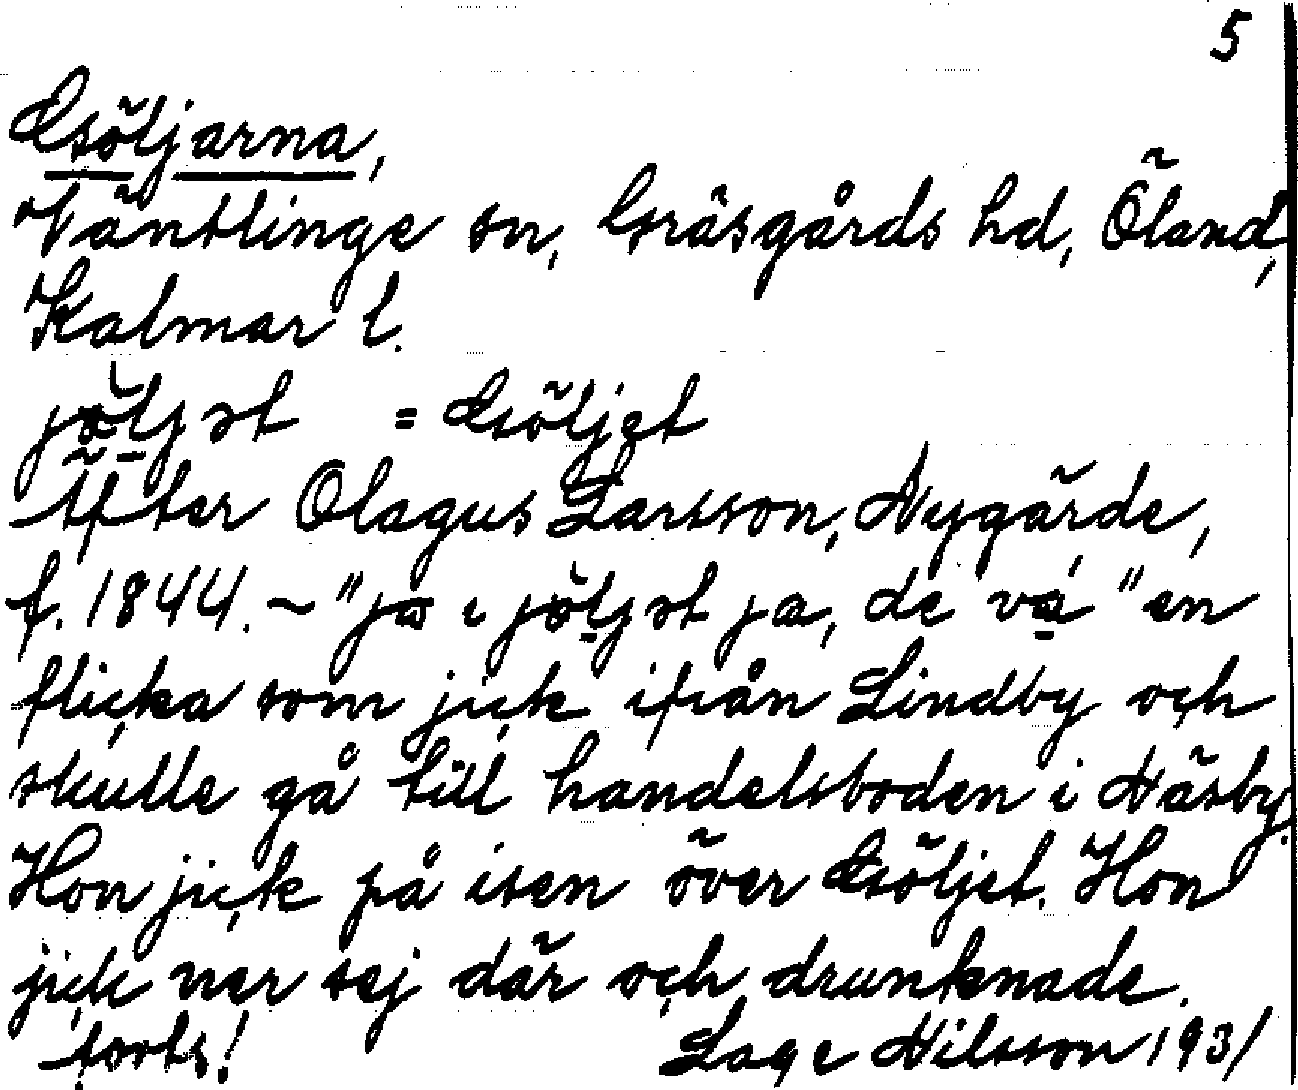 5
Esöljarna,
Ventlinge sn, Gräsgårds hd, Öland,
Kalmar l.
= Esöljet
Efter Olagus Larsson, Nygärde,
f. 1844. ~ "ja i ja, de va" en
flicka som jick ifrån Lindby och
skulle gå till handelsboden i Näsby.
Hon jick på isen över Esöljet. Hon
jick ner sej där och drunknade.
forts! Lage Nilsson 1931